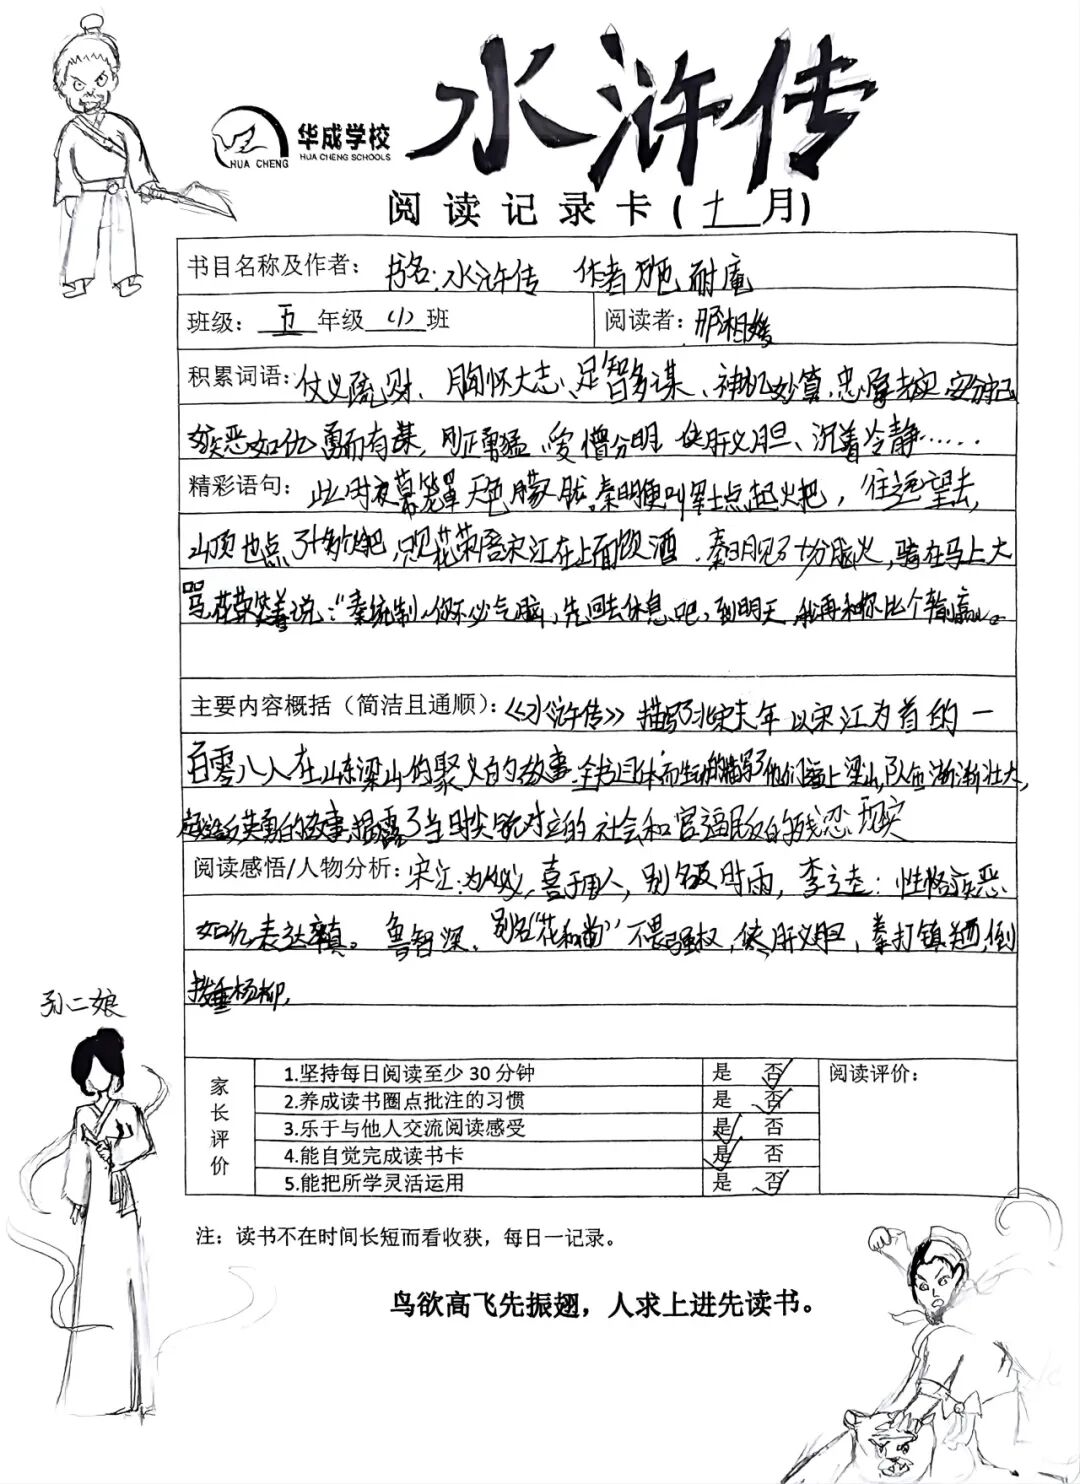 水浒传
华成学校
HUA CHENG
HUA CHENG SCHOOLS
阅读记录卡(十一月)
书目名称及作者：书名:水浒传 作者施耐庵
班级：五年级(1)班 阅读者：邢相媛
积累词语：仗义疏财、胸怀大志、足智多谋、神机妙算、忠厚老实 安分守己
嫉恶如仇 勇而有谋，刚正勇猛、爱憎分明 侠肝义胆、沉着冷静……
精彩语句：此时夜幕笼罩 天色朦胧，秦明便叫军士点起火把，往远望去，
山顶也点了十多个火把 只见花荣陪宋江在上面饮酒 秦明见了十分恼火，骑在马上大
骂 花荣笑着说：“秦统制 你不必气恼，先回去休息吧，到明天，我再和你比个输赢。
主要内容概括（简洁且通顺）：《水浒传》描写了北宋末年 以宋江为首的一
百零八人在山东梁山的聚义的故事。全书具体而生动的描写了他们逼上梁山，队伍渐渐壮大，
英勇的故事，揭露了当时尖锐对立的社会和官逼民反的残忍现实
阅读感悟/人物分析：宋江:为人仗义，喜于用人，别名及时雨，李逵：性格疾恶
如仇 表达率真。鲁智深，别名“花和尚” 不畏强权，侠肝义胆，拳打镇关西，倒
拔垂杨柳，
孙二娘
家长评价
1.坚持每日阅读至少30分钟 是 否✓
2.养成读书圈点批注的习惯 是 否✓
3.乐于与他人交流阅读感受 是✓ 否
4.能自觉完成读书卡 是✓ 否
5.能把所学灵活运用 是 否✓
阅读评价：
注：读书不在时间长短而看收获，每日一记录。
鸟欲高飞先振翅，人求上进先读书。